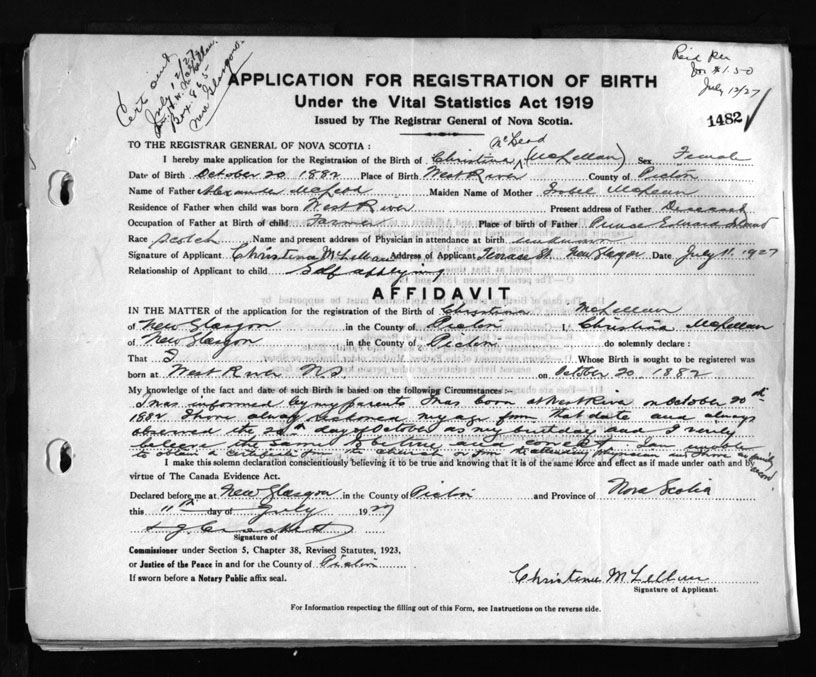 Cert sent
July 12/27
Box 825
New Glasgow.
Paid
for $1.50
July 12/27
APPLICATION FOR REGISTRATION OF BIRTH
Under the Vital Statistics Act 1919
Issued by The Registrar General of Nova Scotia.
1482
TO THE REGISTRAR GENERAL OF NOVA SCOTIA :
McLeod
I hereby make application for the Registration of the Birth of Christina (McLellan) Sex Female
Date of Birth October 20 1882 Place of Birth West River County of Pictou
Name of Father Alexander McLeod Maiden Name of Mother McLean
Residence of Father when child was born West River Present address of Father Deceased
Occupation of Father at Birth of child Farmer Place of birth of Father Prince Edward Island
Race Scotch Name and present address of Physician in attendance at birth unknown
Signature of Applicant Christina McLellan Address of Applicant Terrace St. New Glasgow Date July 11. 1927
Relationship of Applicant to child Self applying
AFFIDAVIT
IN THE MATTER of the application for the registration of the Birth of Christina McLellan
of New Glasgow in the County of Pictou I, Christina McLellan
of New Glasgow in the County of Pictou do solemnly declare :
That I Whose Birth is sought to be registered was
born at West River N.S. on October 20. 1882
My knowledge of the fact and date of such Birth is based on the following Circumstances :-
I was informed by my parents I was born at West River on October 20th
1882 I have always reckoned my age from that date and always
observed the 20th day of October as my birthday and I verily
believe the same to be true and correct. I am unable
to obtain a certificate from the church or from the attending physician and have no family
record
I make this solemn declaration conscientiously believing it to be true and knowing that it is of the same force and effect as if made under oath and by
virtue of The Canada Evidence Act.
Declared before me at New Glasgow in the County of Pictou and Province of Nova Scotia
this 11th day of July 1927
Signature of
Commissioner under Section 5, Chapter 38, Revised Statutes, 1923,
or Justice of the Peace in and for the County of Pictou
If sworn before a Notary Public affix seal.
Christina McLellan
Signature of Applicant.
For Information respecting the filling out of this Form, see Instructions on the reverse side.